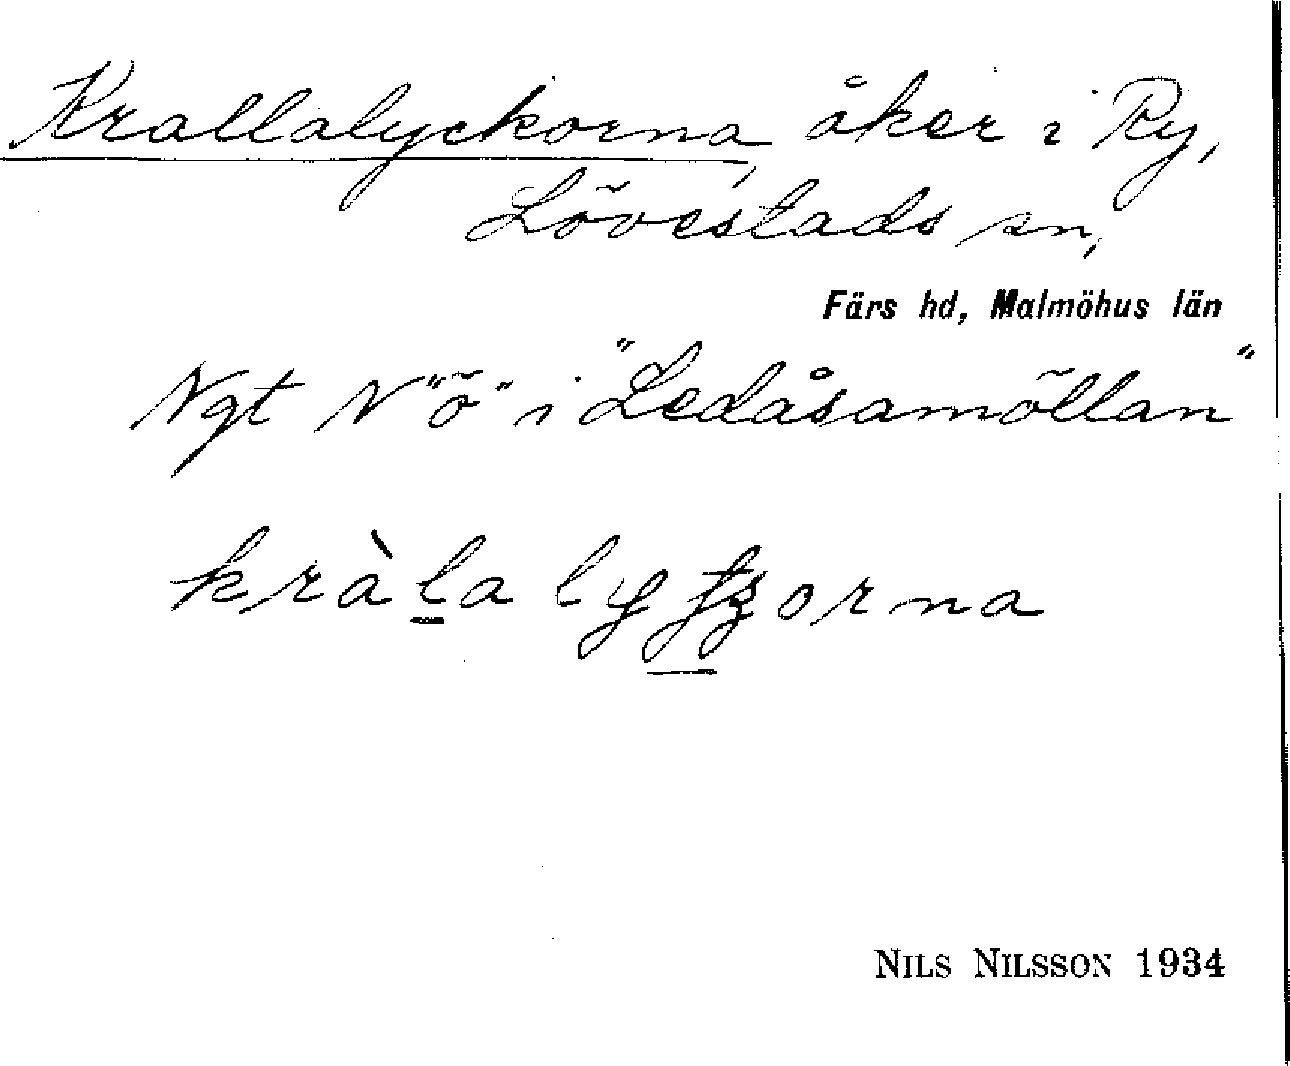 Krallalyckorna, åker i Ry,
Lövestads sn,
Färs hd, Malmöhus län
Ngt N "ö" i "Ledåsamöllan"
NILS NILSSON 1934